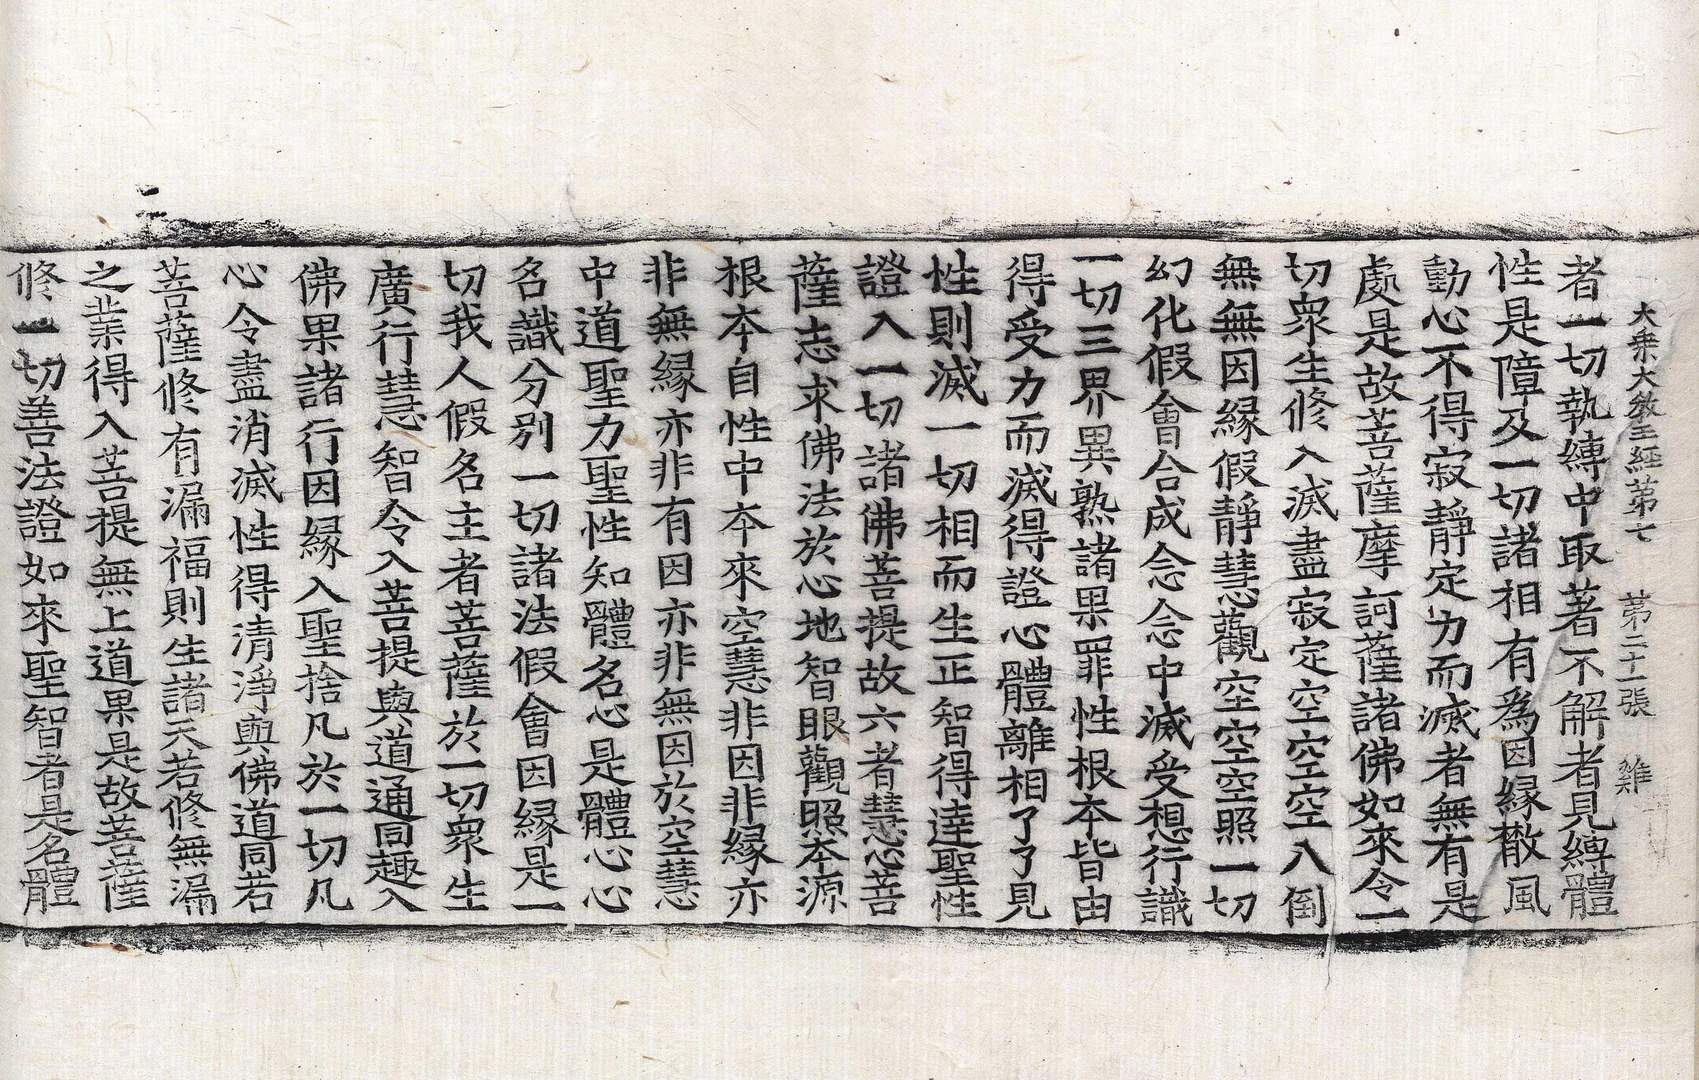 大乘大教王經第七　第二十一張　雞
者一切執縛中取著不解者見縛體
性是障及一切諸相有爲因緣散風
動心不得寂靜定力而滅者無有是
處是故菩薩摩訶薩諸佛如來令一
切衆生修入滅盡寂定空空空入倒
無無因緣假靜慧觀空空空照一切
幻化假會合成念念中滅受想行識
一切三界異熟諸果罪性根本皆由
得受力而滅得證心體離相了了見
性則滅一切相而生正智得達聖性
證入一切諸佛菩提故六者慧慈菩
薩志求佛法於心地智眼觀照本源
根本自性中本來空慧非因非緣亦
非無緣亦非有因亦非無因於空慧
中道聖力聖性知體名心是體心心
名識分別一切諸法假會因緣是一
切我人假名主者菩薩於一切衆生
廣行慧智令入菩提與道通同趣入
佛果諸行因緣入聖捨凡於一切凡
心令盡消滅性得清淨與佛道同若
菩薩修有漏福則生諸天若修無漏
之業得入菩提無上道果是故菩薩
修一切善法證如來聖智者是名體